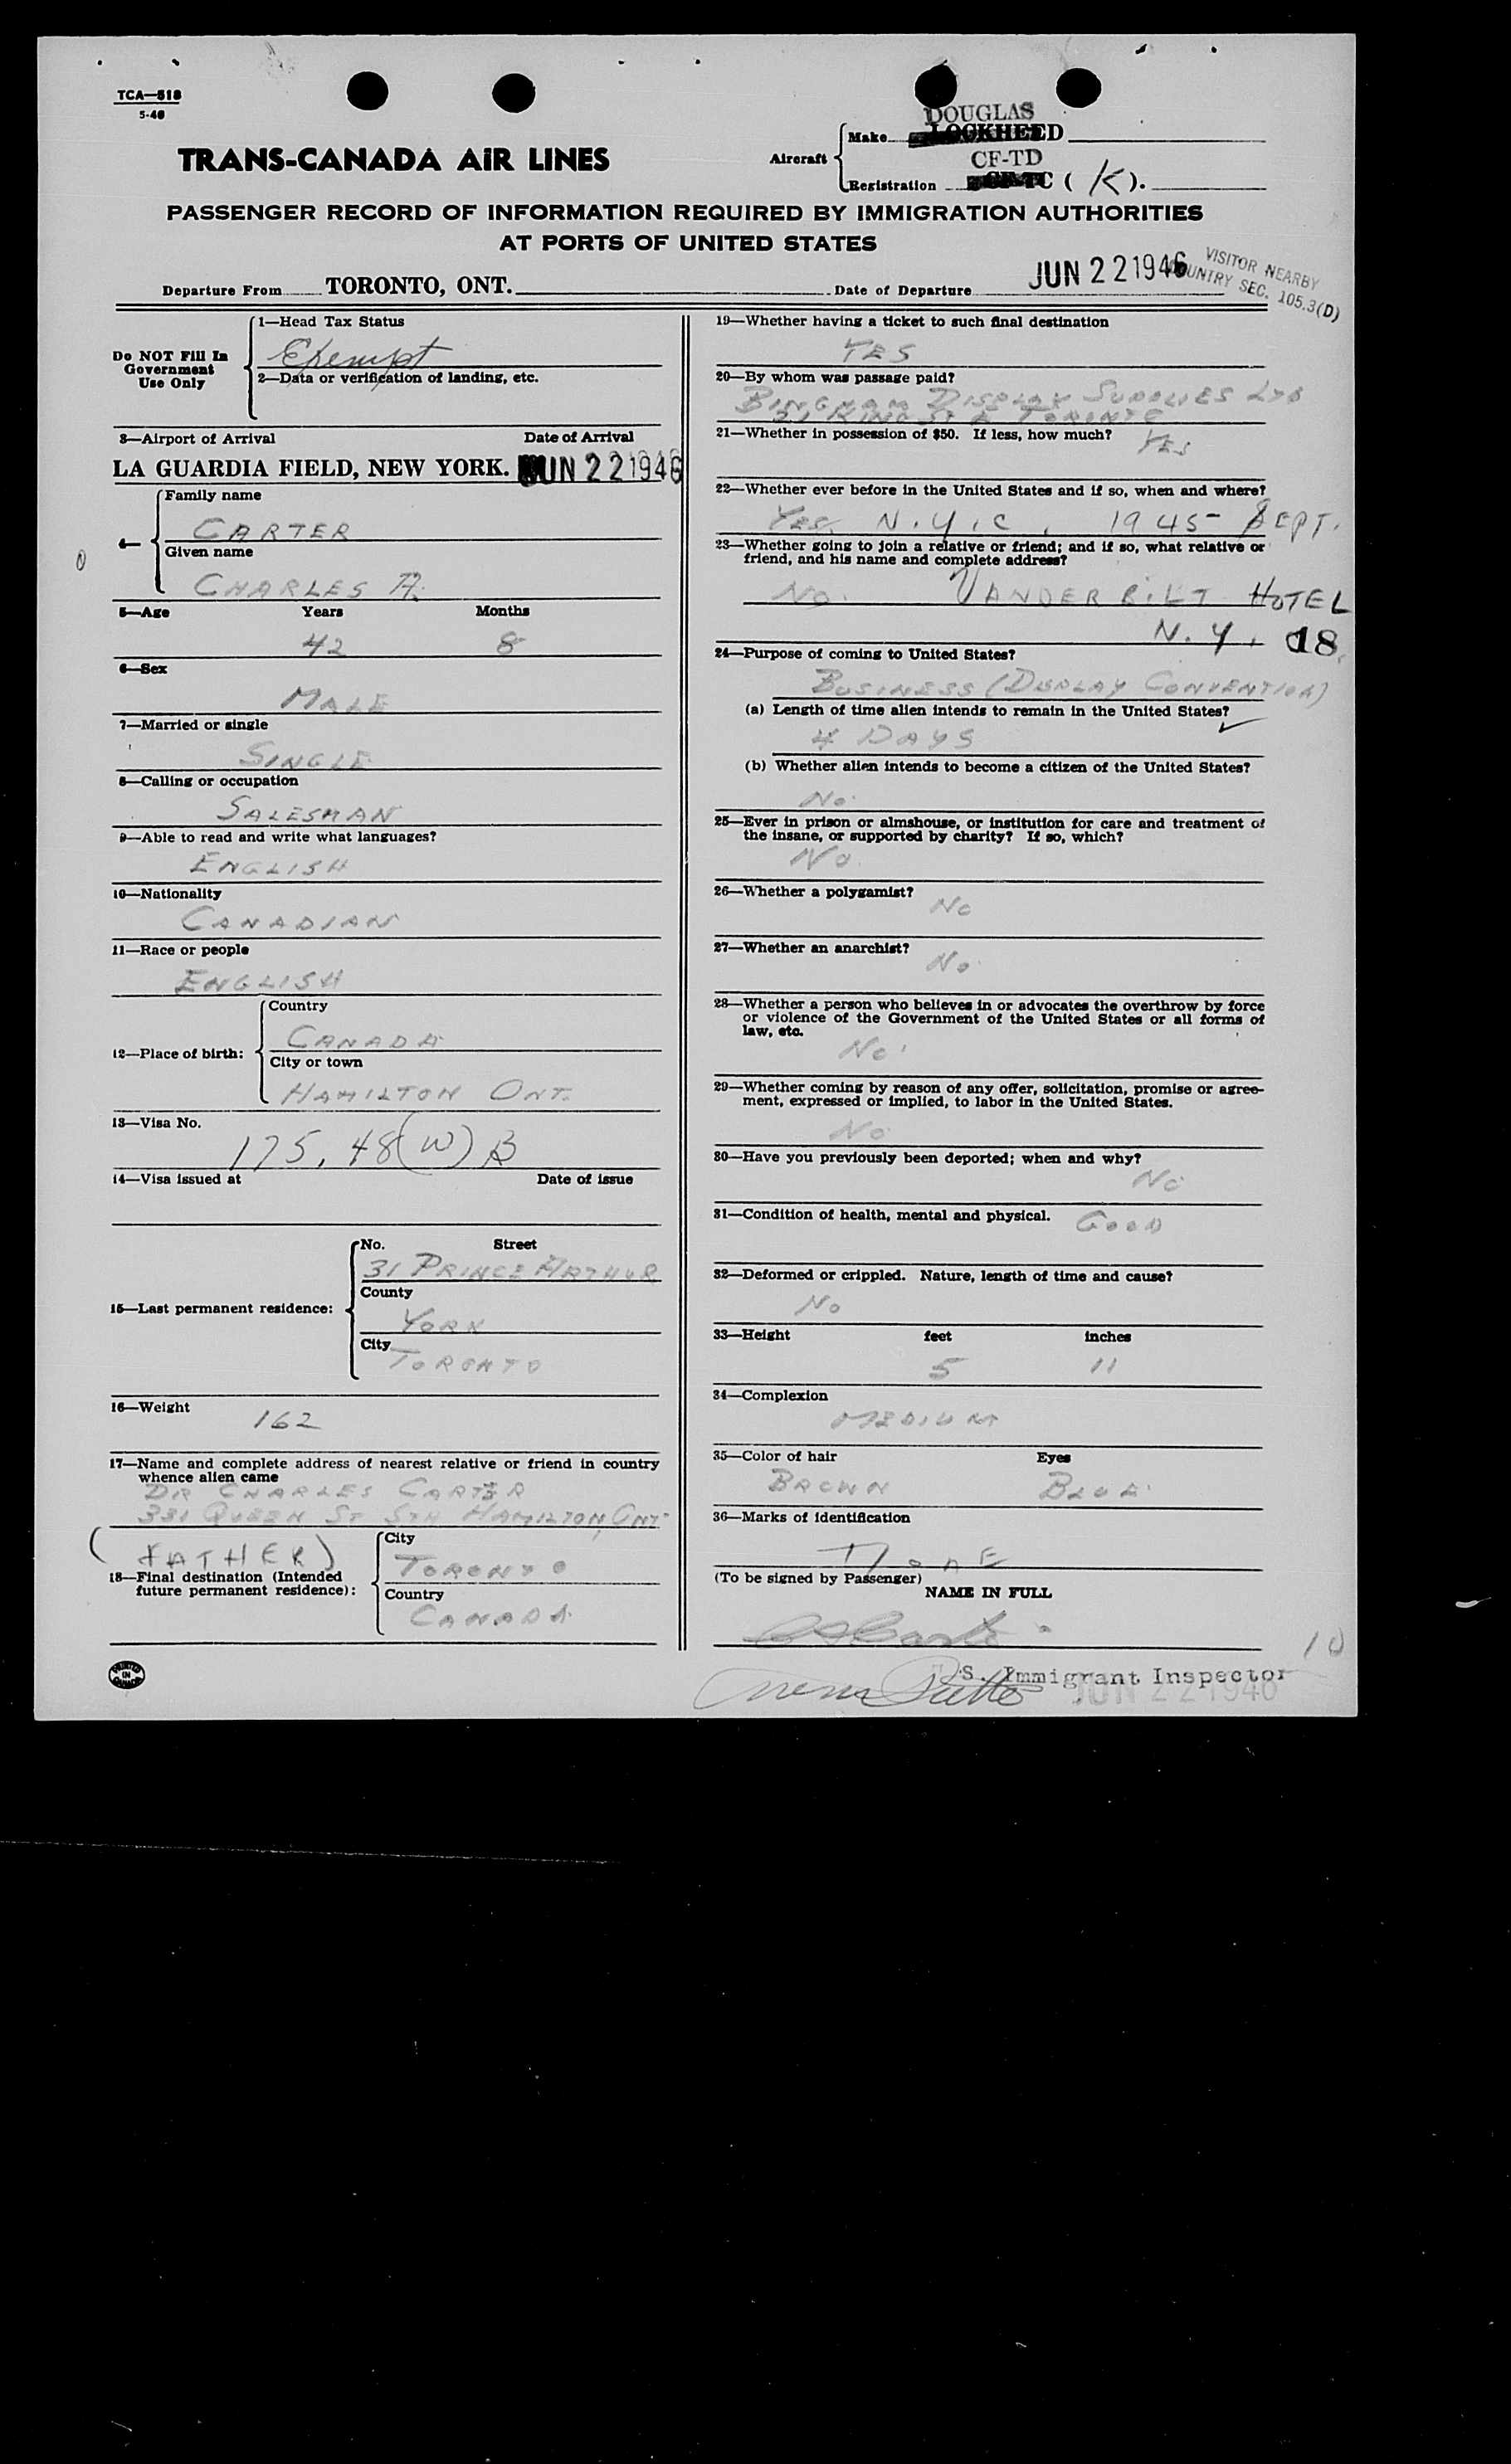 TCA—518
5-46
TRANS-CANADA AIR LINES
Aircraft
Make DOUGLAS
LOCKHEED
Registration CF-TD
CF-TC ( K ).
PASSENGER RECORD OF INFORMATION REQUIRED BY IMMIGRATION AUTHORITIES
AT PORTS OF UNITED STATES
Departure From TORONTO, ONT. Date of Departure JUN 22 1946
VISITOR NEARBY
COUNTRY SEC. 105.3(D)
Do NOT Fill In
Government
Use Only
1—Head Tax Status
Exempt
2—Data or verification of landing, etc.
3—Airport of Arrival Date of Arrival
LA GUARDIA FIELD, NEW YORK. JUN 22 1946
4—
Family name
CARTER
Given name
CHARLES A.
5—Age Years Months
42 8
6—Sex
MALE
7—Married or single
SINGLE
8—Calling or occupation
SALESMAN
9—Able to read and write what languages?
ENGLISH
10—Nationality
CANADIAN
11—Race or people
ENGLISH
12—Place of birth:
Country
CANADA
City or town
HAMILTON ONT.
13—Visa No.
175.48(W)B
14—Visa issued at Date of issue
15—Last permanent residence:
No. Street
31 PRINCE ARTHUR
County
YORK
City
TORONTO
16—Weight
162
17—Name and complete address of nearest relative or friend in country
whence alien came
DR CHARLES CARTER
331 QUEEN ST STH HAMILTON, ONT
(FATHER)
18—Final destination (Intended
future permanent residence):
City
TORONTO
Country
CANADA
PRINTED
IN
CANADA
19—Whether having a ticket to such final destination
YES
20—By whom was passage paid?
BINGHAM DISPLAY SUPPLIES LTD
21 KING ST E TORONTO
21—Whether in possession of $50. If less, how much?
YES
22—Whether ever before in the United States and if so, when and where?
YES. N.Y.C. 1945- SEPT.
23—Whether going to join a relative or friend; and if so, what relative or
friend, and his name and complete address?
NO. VANDERBILT HOTEL
N.Y. 18
24—Purpose of coming to United States?
BUSINESS (DISPLAY CONVENTION)
(a) Length of time alien intends to remain in the United States?
4 DAYS
(b) Whether alien intends to become a citizen of the United States?
NO
25—Ever in prison or almshouse, or institution for care and treatment of
the insane, or supported by charity? If so, which?
NO
26—Whether a polygamist?
NO
27—Whether an anarchist?
NO
28—Whether a person who believes in or advocates the overthrow by force
or violence of the Government of the United States or all forms of
law, etc.
NO
29—Whether coming by reason of any offer, solicitation, promise or agree-
ment, expressed or implied, to labor in the United States.
NO
30—Have you previously been deported; when and why?
NO
31—Condition of health, mental and physical. GOOD
32—Deformed or crippled. Nature, length of time and cause?
NO
33—Height feet inches
5 11
34—Complexion
MEDIUM
35—Color of hair Eyes
BROWN BLUE
36—Marks of identification
NONE
(To be signed by Passenger)
NAME IN FULL
CA Carter
10
S. Immigrant Inspector
JUN 22 1946